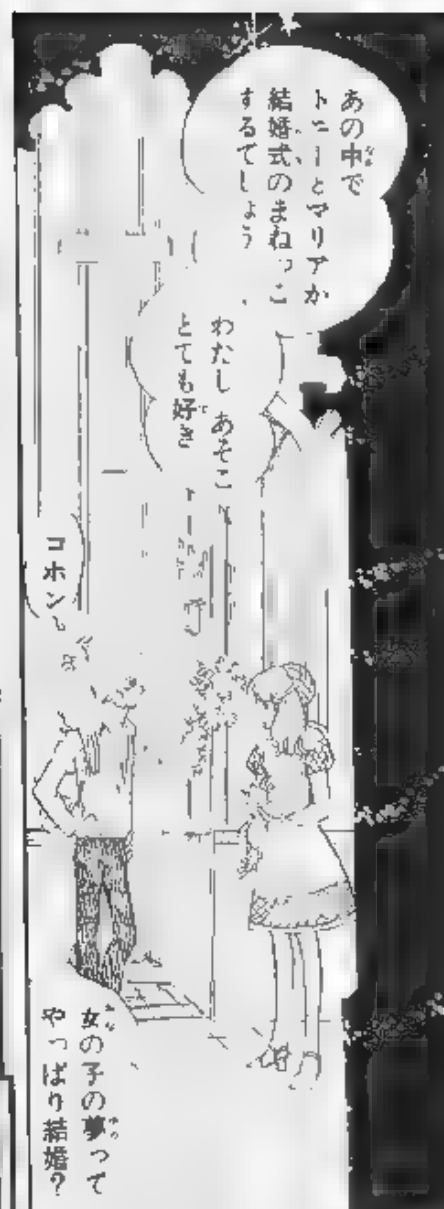 あの中で
トニーとマリアが
結婚式のまねっこ
するでしょう
わたし あそこ
とても好き
コホン
女の子の夢って
やっぱり結婚？